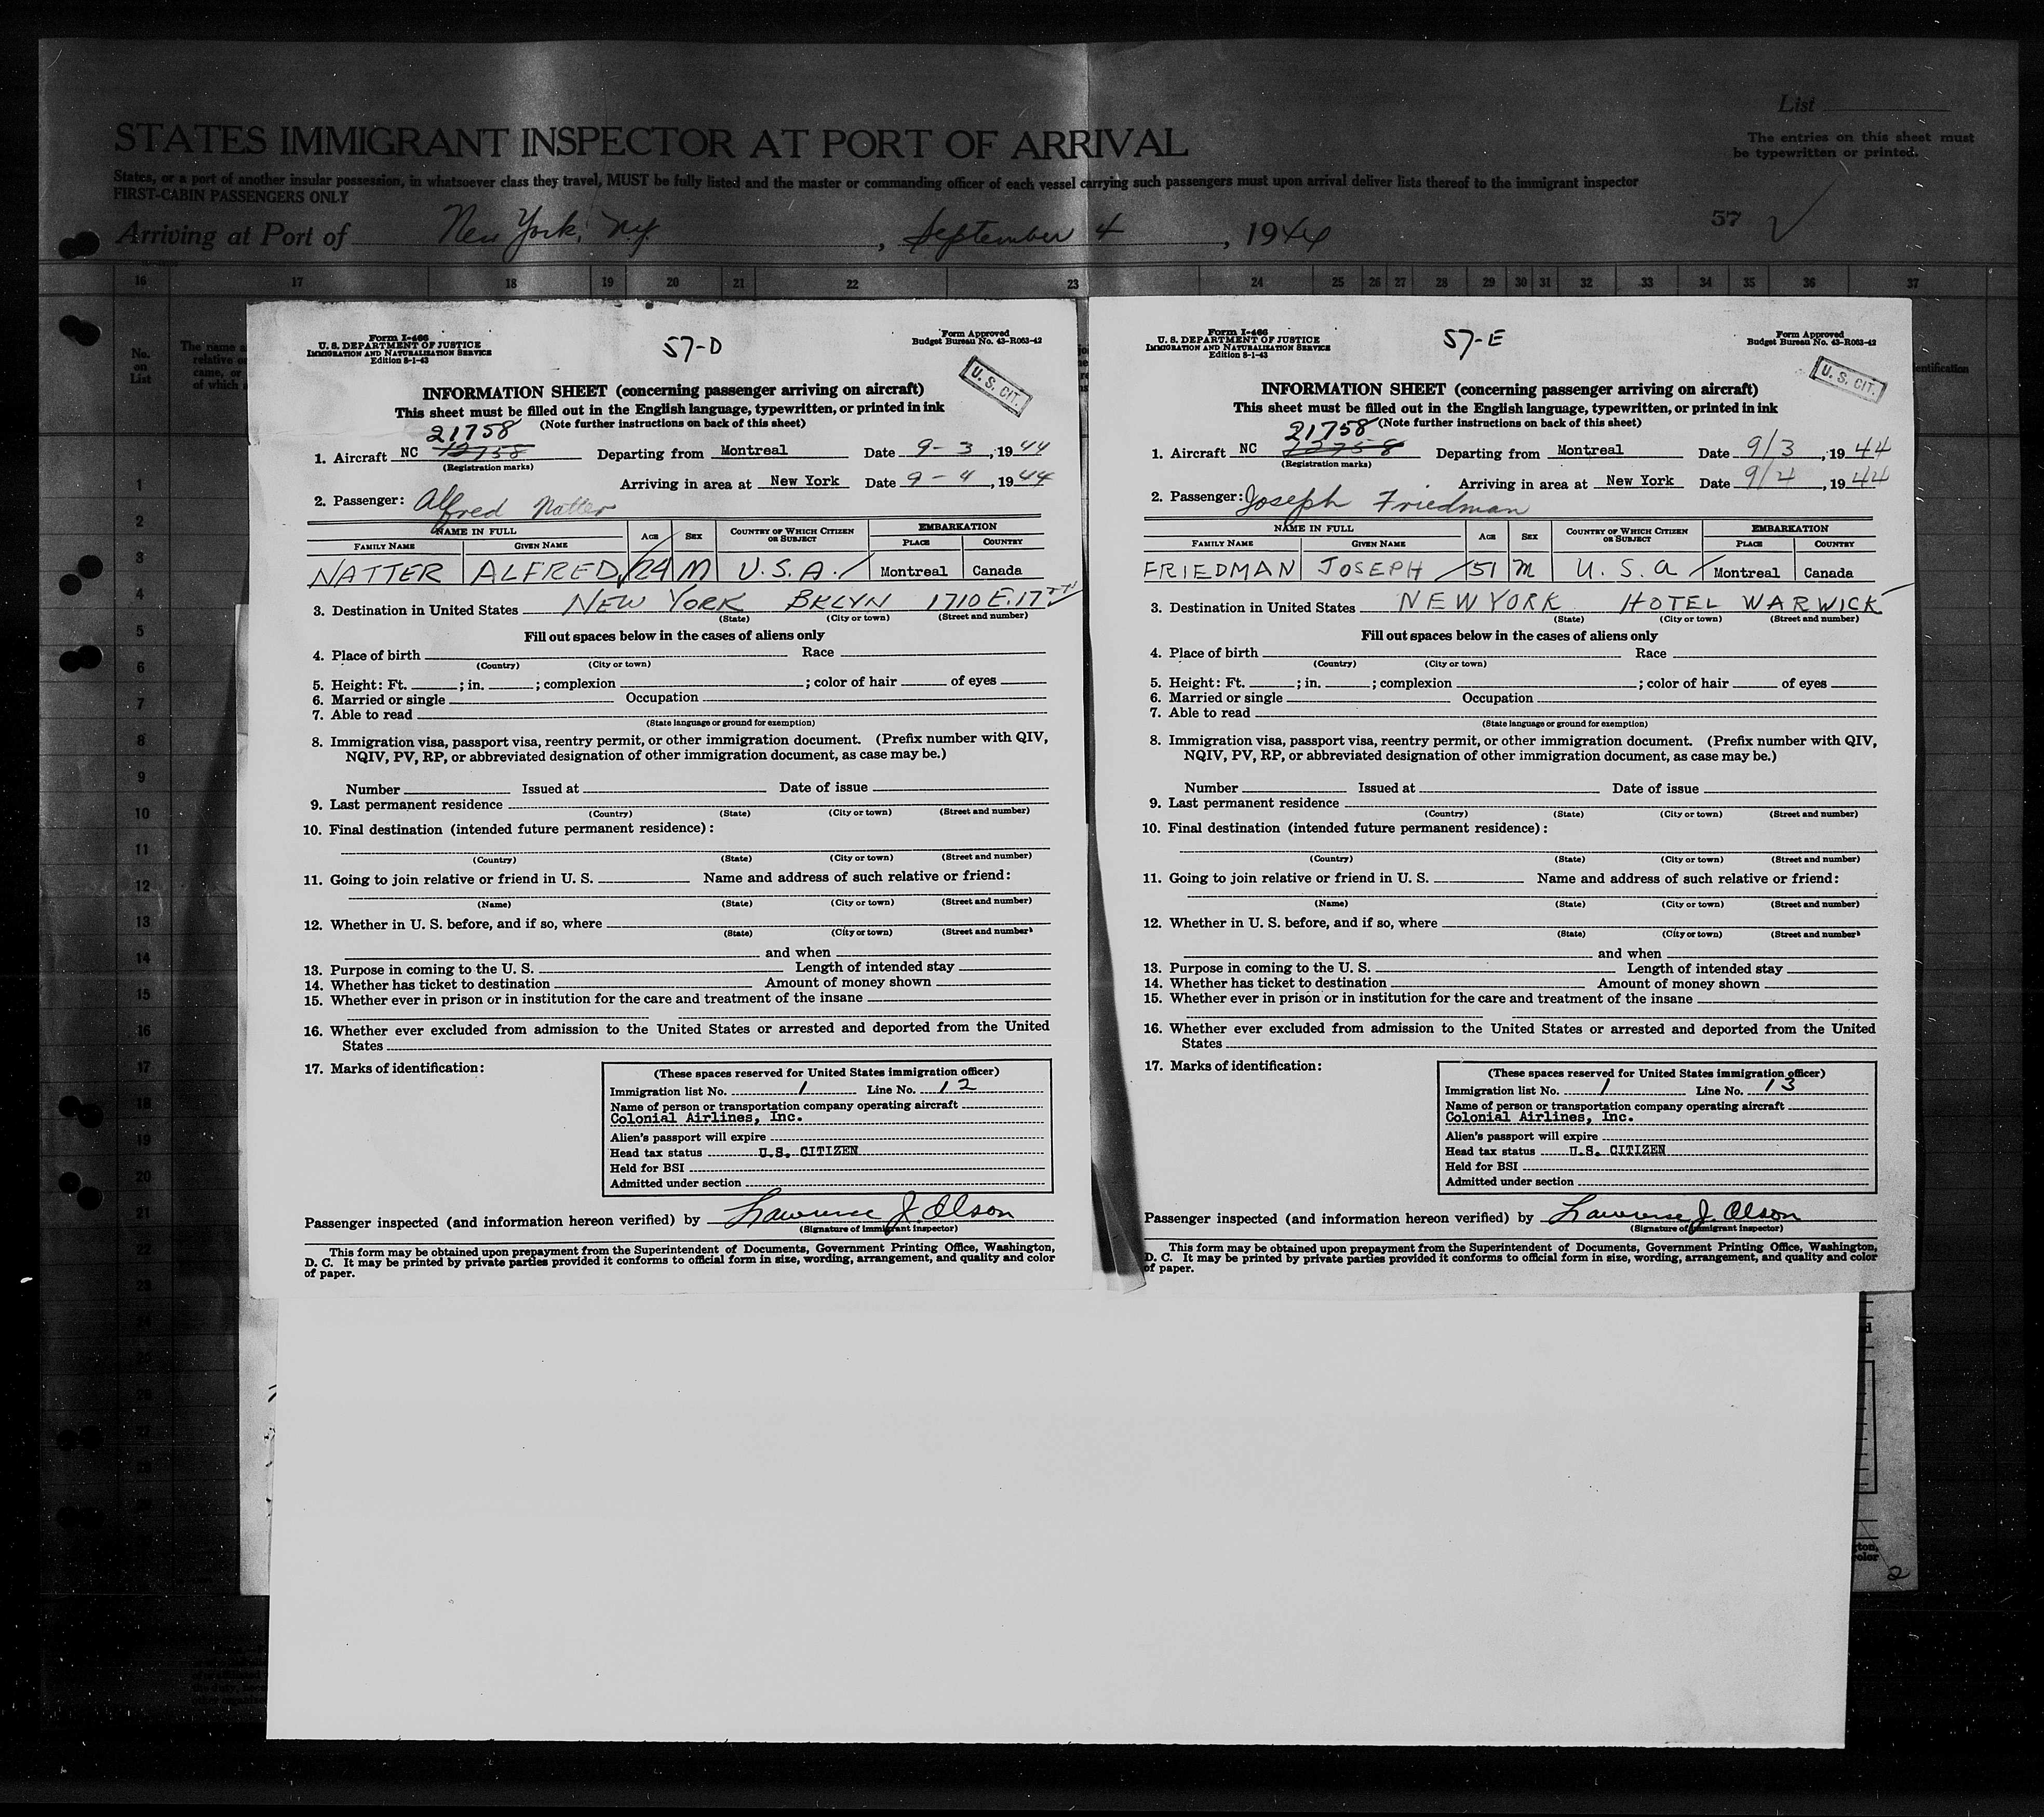 List
STATES IMMIGRANT INSPECTOR AT PORT OF ARRIVAL
The entries on this sheet must
be typewritten or printed.
States, or a port of another insular possession, in whatsoever class they travel, MUST be fully listed and the master or commanding officer of each vessel carrying such passengers must upon arrival deliver lists thereof to the immigrant inspector
FIRST-CABIN PASSENGERS ONLY
57
Arriving at Port of New York, N.Y. , September 4 , 1944
16 17 18 19 20 21 22 23 24 25 26 27 28 29 30 31 32 33 34 35 36 37
No.
on
List
The name a
relative or
came, or
of which a
1
2
3
4
5
6
7
8
9
10
11
12
13
14
15
16
17
18
19
20
21
22
23
24
Form I-466
U. S. DEPARTMENT OF JUSTICE
IMMIGRATION AND NATURALIZATION SERVICE
Edition 8-1-43
57-D
Form Approved
Budget Bureau No. 43-R063-42
U. S. CIT.
INFORMATION SHEET (concerning passenger arriving on aircraft)
This sheet must be filled out in the English language, typewritten, or printed in ink
(Note further instructions on back of this sheet)
21758
1. Aircraft NC 12758 Departing from Montreal Date 9-3, 1944
(Registration marks)
Arriving in area at New York Date 9-4, 1944
2. Passenger: Alfred Natter
NAME IN FULL AGE SEX COUNTRY OF WHICH CITIZEN OR SUBJECT EMBARKATION
FAMILY NAME GIVEN NAME PLACE COUNTRY
NATTER ALFRED 24 M U.S.A. Montreal Canada
3. Destination in United States NEW YORK BKLYN 1710 E. 17TH
(State) (City or town) (Street and number)
Fill out spaces below in the cases of aliens only
4. Place of birth Race
(Country) (City or town)
5. Height: Ft. ; in. ; complexion ; color of hair of eyes
6. Married or single Occupation
7. Able to read
(State language or ground for exemption)
8. Immigration visa, passport visa, reentry permit, or other immigration document. (Prefix number with QIV,
NQIV, PV, RP, or abbreviated designation of other immigration document, as case may be.)
Number Issued at Date of issue
9. Last permanent residence
(Country) (State) (City or town) (Street and number)
10. Final destination (intended future permanent residence):
(Country) (State) (City or town) (Street and number)
11. Going to join relative or friend in U. S. Name and address of such relative or friend:
(Name) (State) (City or town) (Street and number)
12. Whether in U. S. before, and if so, where
(State) (City or town) (Street and number)
and when
13. Purpose in coming to the U. S. Length of intended stay
14. Whether has ticket to destination Amount of money shown
15. Whether ever in prison or in institution for the care and treatment of the insane
16. Whether ever excluded from admission to the United States or arrested and deported from the United
States
17. Marks of identification:
(These spaces reserved for United States immigration officer)
Immigration list No. 1 Line No. 12
Name of person or transportation company operating aircraft
Colonial Airlines, Inc.
Alien's passport will expire
Head tax status U.S. CITIZEN
Held for BSI
Admitted under section
Passenger inspected (and information hereon verified) by Lawrence J. Olson
(Signature of immigrant inspector)
This form may be obtained upon prepayment from the Superintendent of Documents, Government Printing Office, Washington,
D. C. It may be printed by private parties provided it conforms to official form in size, wording, arrangement, and quality and color
of paper.
Form I-466
U. S. DEPARTMENT OF JUSTICE
IMMIGRATION AND NATURALIZATION SERVICE
Edition 8-1-43
57-E
Form Approved
Budget Bureau No. 43-R063-42
U. S. CIT.
INFORMATION SHEET (concerning passenger arriving on aircraft)
This sheet must be filled out in the English language, typewritten, or printed in ink
(Note further instructions on back of this sheet)
21758
1. Aircraft NC 12758 Departing from Montreal Date 9/3, 1944
(Registration marks)
Arriving in area at New York Date 9/4, 1944
2. Passenger: Joseph Friedman
NAME IN FULL AGE SEX COUNTRY OF WHICH CITIZEN OR SUBJECT EMBARKATION
FAMILY NAME GIVEN NAME PLACE COUNTRY
FRIEDMAN JOSEPH 51 M U.S.A Montreal Canada
3. Destination in United States NEW YORK HOTEL WARWICK
(State) (City or town) (Street and number)
Fill out spaces below in the cases of aliens only
4. Place of birth Race
(Country) (City or town)
5. Height: Ft. ; in. ; complexion ; color of hair of eyes
6. Married or single Occupation
7. Able to read
(State language or ground for exemption)
8. Immigration visa, passport visa, reentry permit, or other immigration document. (Prefix number with QIV,
NQIV, PV, RP, or abbreviated designation of other immigration document, as case may be.)
Number Issued at Date of issue
9. Last permanent residence
(Country) (State) (City or town) (Street and number)
10. Final destination (intended future permanent residence):
(Country) (State) (City or town) (Street and number)
11. Going to join relative or friend in U. S. Name and address of such relative or friend:
(Name) (State) (City or town) (Street and number)
12. Whether in U. S. before, and if so, where
(State) (City or town) (Street and number)
and when
13. Purpose in coming to the U. S. Length of intended stay
14. Whether has ticket to destination Amount of money shown
15. Whether ever in prison or in institution for the care and treatment of the insane
16. Whether ever excluded from admission to the United States or arrested and deported from the United
States
17. Marks of identification:
(These spaces reserved for United States immigration officer)
Immigration list No. 1 Line No. 13
Name of person or transportation company operating aircraft
Colonial Airlines, Inc.
Alien's passport will expire
Head tax status U.S. CITIZEN
Held for BSI
Admitted under section
Passenger inspected (and information hereon verified) by Lawrence J. Olson
(Signature of immigrant inspector)
This form may be obtained upon prepayment from the Superintendent of Documents, Government Printing Office, Washington,
D. C. It may be printed by private parties provided it conforms to official form in size, wording, arrangement, and quality and color
of paper.
entification
ton,
color
2